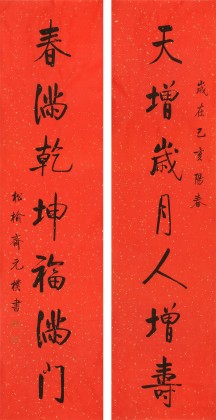 歲在己亥陽春
天增歲月人增壽
春滿乾坤福滿门
松榆齋元樸書